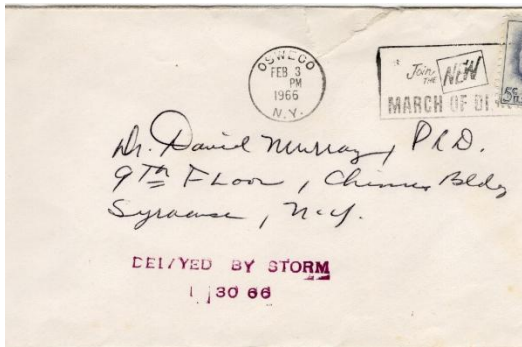 OSWEGO
FEB 3
PM
1966
N.Y.
Join
THE NEW
MARCH OF DI
5c
Dr. David Murray, PhD.
9Th Floor, Chimes Bldg
Syracuse, N.Y.
DELAYED BY STORM
1 30 66